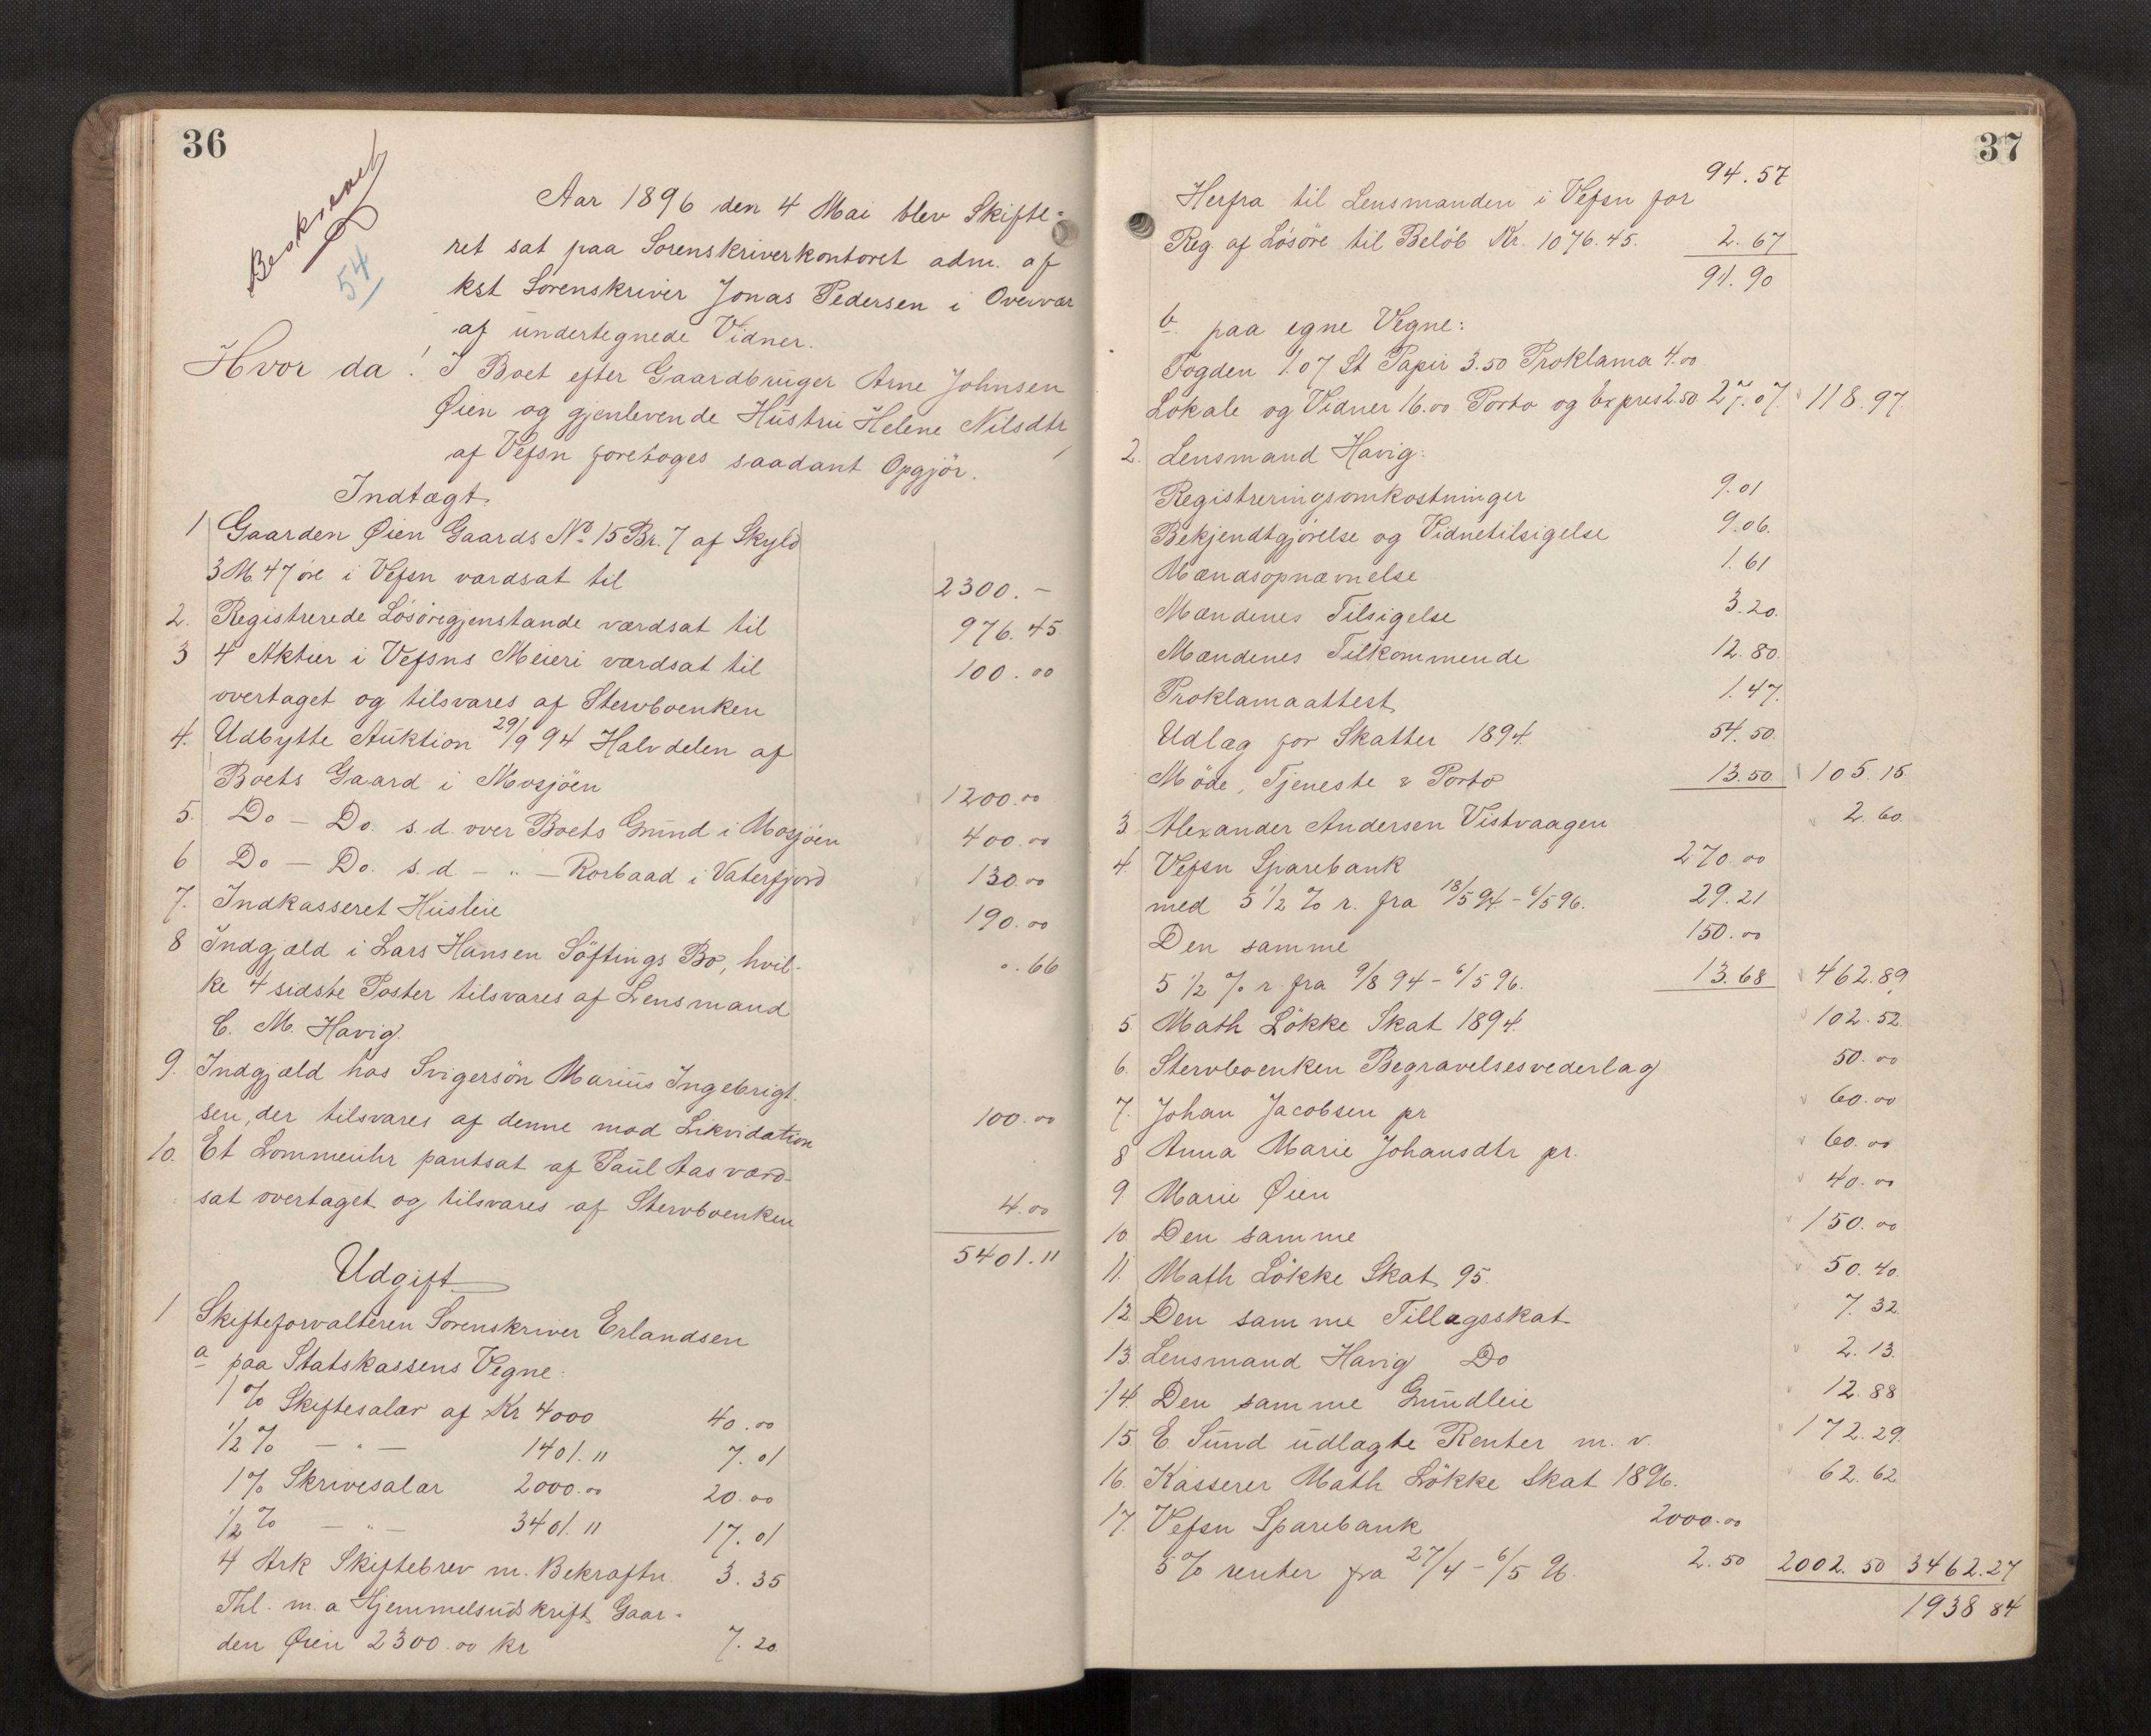 36
Beskrevet
54
Aar 1896 den 4 Mai blev Skifte-
ret sat paa Sorenskriverkontoret adm. af
kst Sorenskriver Jonas Pedersen i Overvær
af undertegnede Vidner.
Hvor da! I Boet efter Gaardbruger Arne Johnsen
Øien og gjenlevende Hustru Helene Nilsdtr
af Vefsn foretoges saadant Opgjör.
Indtægt.
1 Gaarden Øien Gaards No 15 Br. 7 af Skyld
3 M. 47 öre i Vefsn værdsat til 2300. –
2. Registrerede Lösöregjenstande værdsat til 976. 45.
3 4 Aktier i Vefsns Meieri værdsat til 100. 00
overtaget og tilsvares af Stervboenken
4. Udbytte Auktion 29/9 94 Halvdelen af
Boets Gaard i Mosjöen 1200. 00
5. Do – Do. s. d. over Boets Grund i Mosjöen 400. 00
6 Do – Do. s. d – " – Rorbaad i Vaterfjord 130. 00
7. Indkasseret Husleie 190. 00
8 Indgjæld i Lars Hansen Söftings Bo, hvil- 0. 66
ke 4 sidste Poster tilsvares af Lensmand
C. M. Havig.
9. Indgjæld hos Svigersön Marius Ingebrigt-
sen, der tilsvares af denne mod Likvidation 100. 00
10. Et Lommeuhr pantsat af Paul Aas værd-
sat overtaget og tilsvares af Stervboenken 4. 00
5401. 11
Udgift
1 Skifteforvalteren Sorenskriver Erlandsen
a paa Statskassens Vegne:
1 % Skiftesalær af Kr 4000 40. 00
1/2 % – " – 1401. 11 7. 01
1 % Skrivesalær 2000. 00 20. 00
1/2 % – " – 3401. 11 17. 01
4 Ark Skiftebrev m. Bekræftn. 3. 35
Thl. m. a Hjemmelsudskrift Gaar-
den Øien 2300. 00 kr 7. 20.
37
94. 57
Herfra til Lensmanden i Vefsn for
Reg. af Lösöre til Belöb Kr. 1076. 45. 2. 67
91. 90
b. paa egne Vegne:
Fogden 1. 07 St Papir 3. 50 Proklama 4. 00
Lokale og Vidner 16. 00 Porto og Expres 2. 50 27. 07. 118. 97.
2. Lensmand Havig:
Registreringsomkostninger 9. 01
Bekjendtgjörelse og Vidnetilsigelse 9. 06.
Mændsopnævnelse 1. 61
Mændenes Tilsigelse 3. 20.
Mændenes Tilkommende 12. 80.
Proklamaattest 1. 47.
Udlæg for Skatter 1894. 54. 50.
Möde, Tjeneste & Porto 13. 50 105. 15.
3. Alexander Andersen Vistvaagen 2. 60.
4. Vefsn Sparebank 270. 00
med 5 1/2 % r. fra 18/5 94 – 6/5 96. 29. 21
Den samme 150. 00
5 1/2 % r. fra 9/8 94 – 6/5 96. 13. 68 462. 89.
5. Math Lökke Skat 1894. 102. 52.
6. Stervboenken Begravelsesvederlag 50. 00
7. Johan Jacobsen pr 60. 00
8 Anna Marie Johansdtr pr. 60. 00
9 Marie Øien 40. 00
10 Den samme 150. 00
11. Math Lökke Skat 95. 50. 40.
12 Den samme Tillægsskat 7. 32.
13. Lensmand Havig Do 2. 13.
14. Den samme Grundleie 12. 88
15. E. Sund udlagte Renter m. v. 172. 29.
16. Kasserer Math Lökke Skat 1896. 62. 62
17. Vefsn Sparebank 2000. 00
5 % renter fra 27/4 – 6/5 96. 2. 50 2002. 50 3462. 27
1938 84